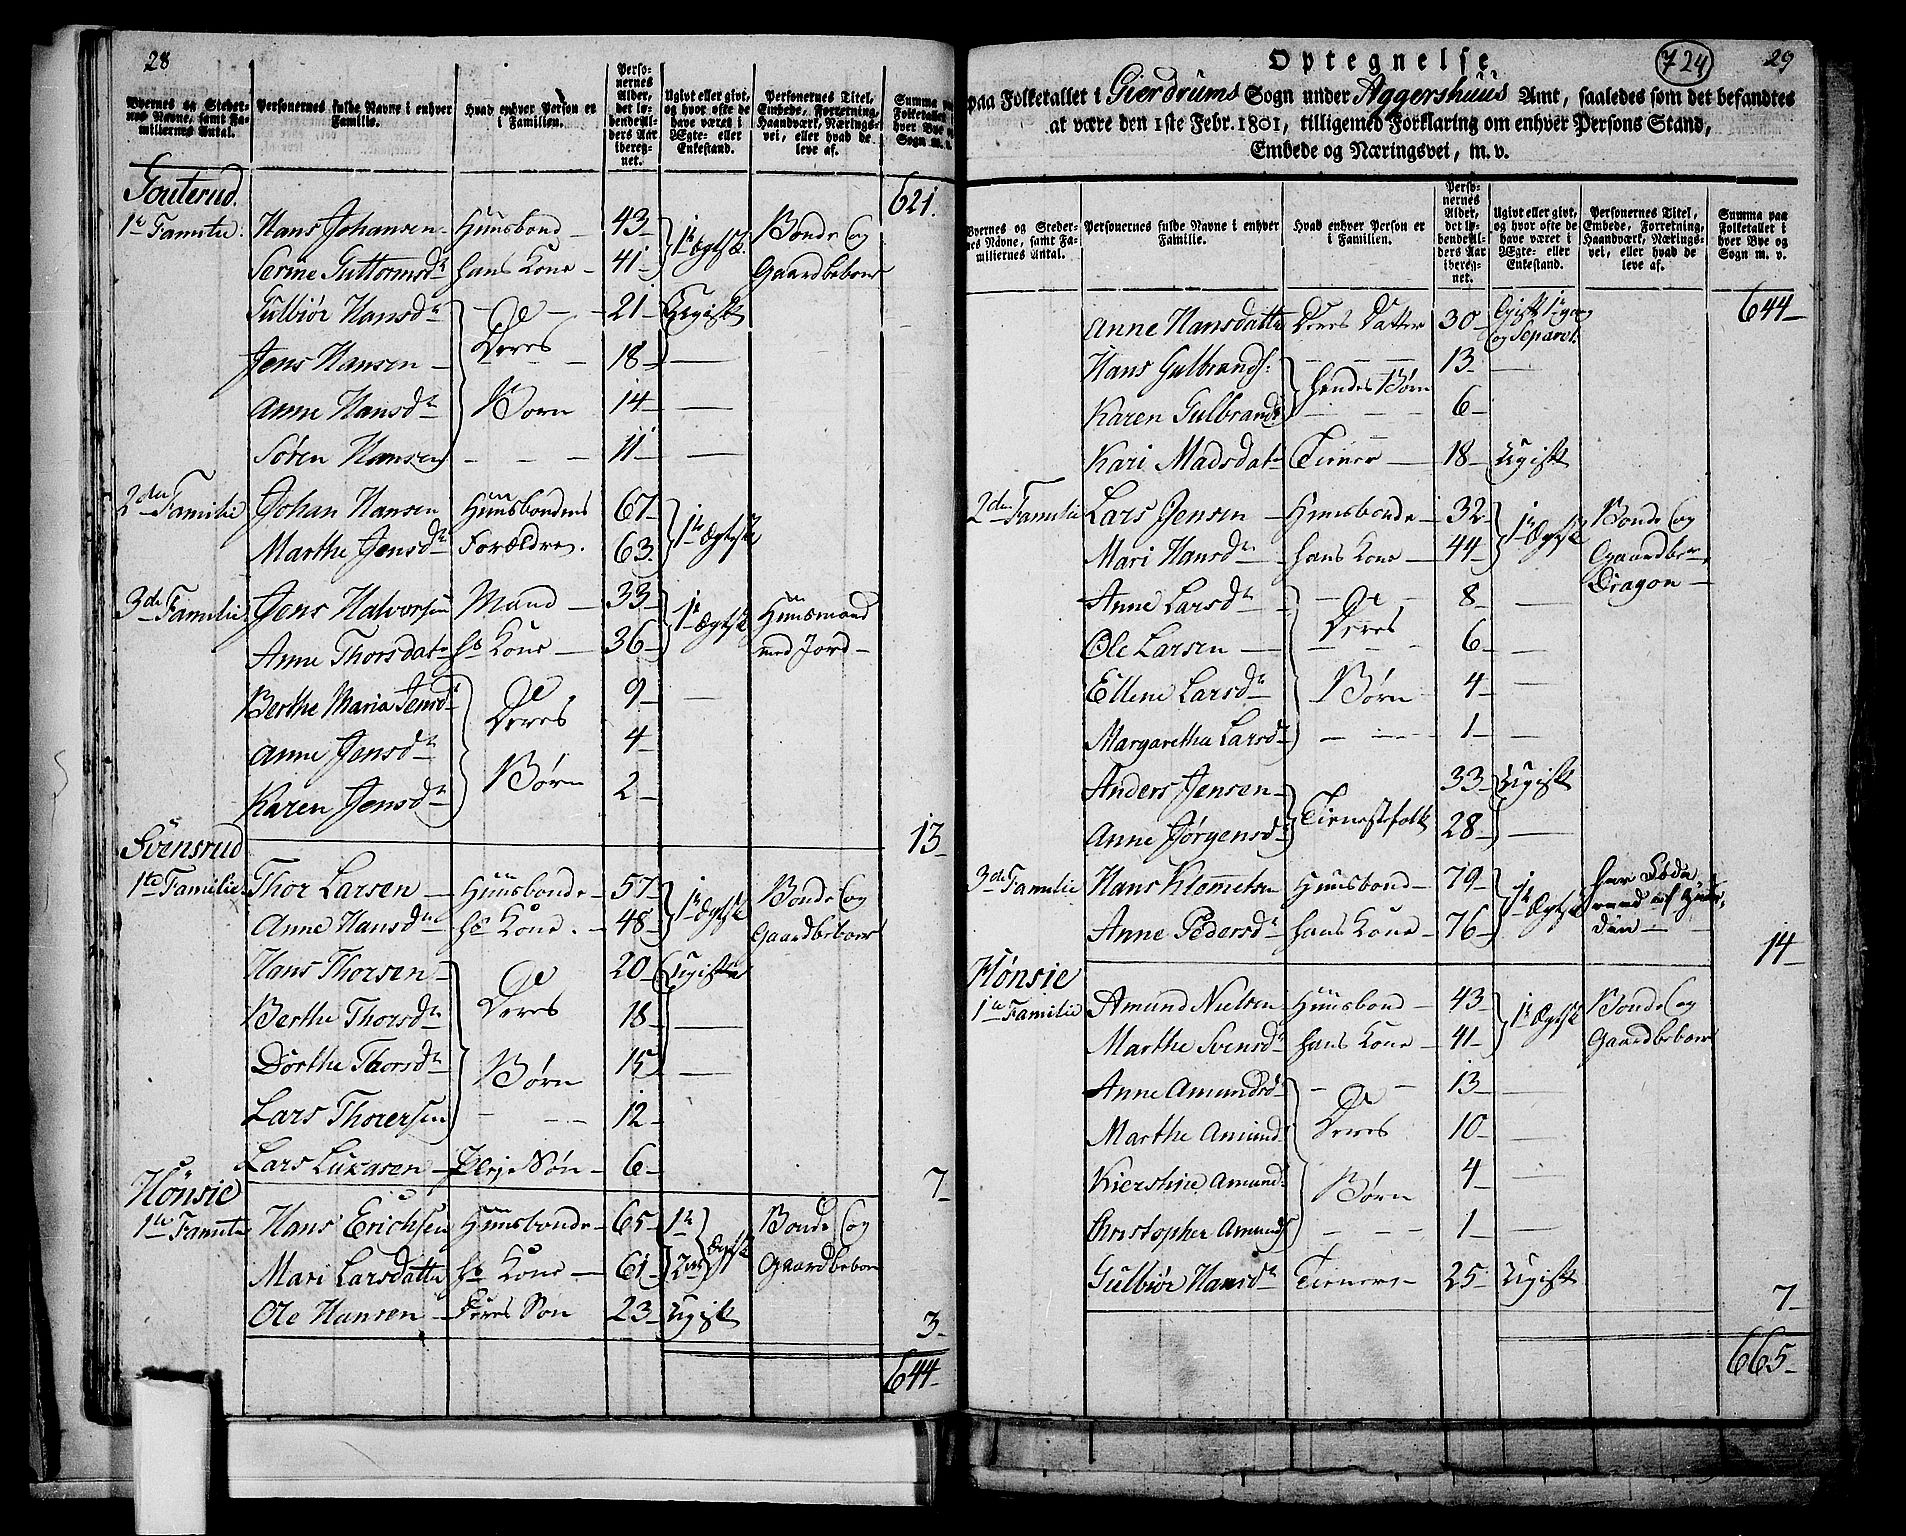 28
Byernes og Stedernes Navne, samt Familiernes Antal.
Personernes fulde Navne i enhver Familie.
Hvad enhver Person er i Familien.
Personernes Alder, det løbende Alders Aar iberegnet.
Ugivt eller givt, og hvor ofte de have været i Ægte- eller Enkestand.
Personernes Titel, Embede, Forretning, Haandværk, Næringsvei, eller hvad de leve af.
Summa paa Folketallet i hver Bye og Sogn m. v.
621.
1te Familie. Hans Johansen Huusbond 43 1te Ægtsk. Bonde og
Serine Guttormsdr hans Kone 41 Gaardbeboer
Gulbiør Hansdr De 21 Ugift
Jens Hansen Deres 18
Anne Hansdr Børn 14
Søren Hansen 11
2den Familie Johan Hansen Huusbondens 67 1te Ægtsk
Marthe Jensdr Forældre. 63
3de Familie Jens Halvorsen Mand 33 1te Ægtsk Huusmand
Anne Thorsdatr hs Kone 36 med Jord
Berthe Maria Jensdr De 9
Anne Jensdr Deres 4
Karen Jensdr Børn 2
Svensrud 13
1te Familie Thor Larsen Huusbonde 57 1te Ægtsk Bonde og
Anne Hansdr hs Kone 48 Gaardbeboer
Hans Thorsen De 20 Ugifte
Berthe Thorsdr Deres 18
Dorthe Thorsdr Børn 15
Lars Thorersen 12
Lars Larsen Pleje Søn 6 7
Hønsie
1te Familie Hans Erichsen Huusbonde 65 1te Ægtsk Bonde og
Mari Larsdatter hs Kone 61 2det Gaardbeboer
Ole Hansen Deres Søn 23 Ugift 3
644
724 29
Optegnelse
paa Folketallet i Gierdrums Sogn under Aggershuus Amt, saaledes som det befandtes
at være den 1ste Febr. 1801, tilligemed Forklaring om enhver Persons Stand,
Embede og Næringsvei, m. v.
Byernes og Stedernes Navne, samt Familiernes Antal.
Personernes fulde Navne i enhver Familie.
Hvad enhver Person er i Familien.
Personernes Alder, det løbende Alders Aar iberegnet.
Ugivt eller givt, og hvor ofte de have været i Ægte- eller Enkestand.
Personernes Titel, Embede, Forretning, Haandværk, Næringsvei, eller hvad de leve af.
Summa paa Folketallet i hver Bye og Sogn m. v.
644
Anne Hansdatter Deres Datter 30 Gift 1 gang
og Separet.
Hans Gulbrands: 13
Karen Gulbrandsdr hendes Børn 6
Kari Madsdatr Tiener 18 Ugift
2den Familie Lars Jensen Huusbonde 32 1te Ægtsk Bonde og
Mari Hansdr hans Kone 44 Gaardber
Dragon
Anne Larsdr De 8
Ole Larsen Deres 6
Ellene Larsdr Børn 4
Margaretha Larsdr 1
Anders Jensen 33 Ugift
Anne Jørgensdr Tienestefolk 28
3de Familie Hans Klometsen Huusbond 79 1te Ægtsk har Føde
Anne Pedersdr hans Kone 76 14
Hønsie
1te Familie Amund Nielsen Huusbond 43 1te Ægtsk Bonde og
Marthe Svensdr hans Kone 41 Gaardbeboer
Anne Amundsd De 13
Marthe Amund: Deres 10
Kierstine Amund: Børn 4
Christopher Amunds 1
Gulbiør Hansdr Tieners 25 Ugift
7
665